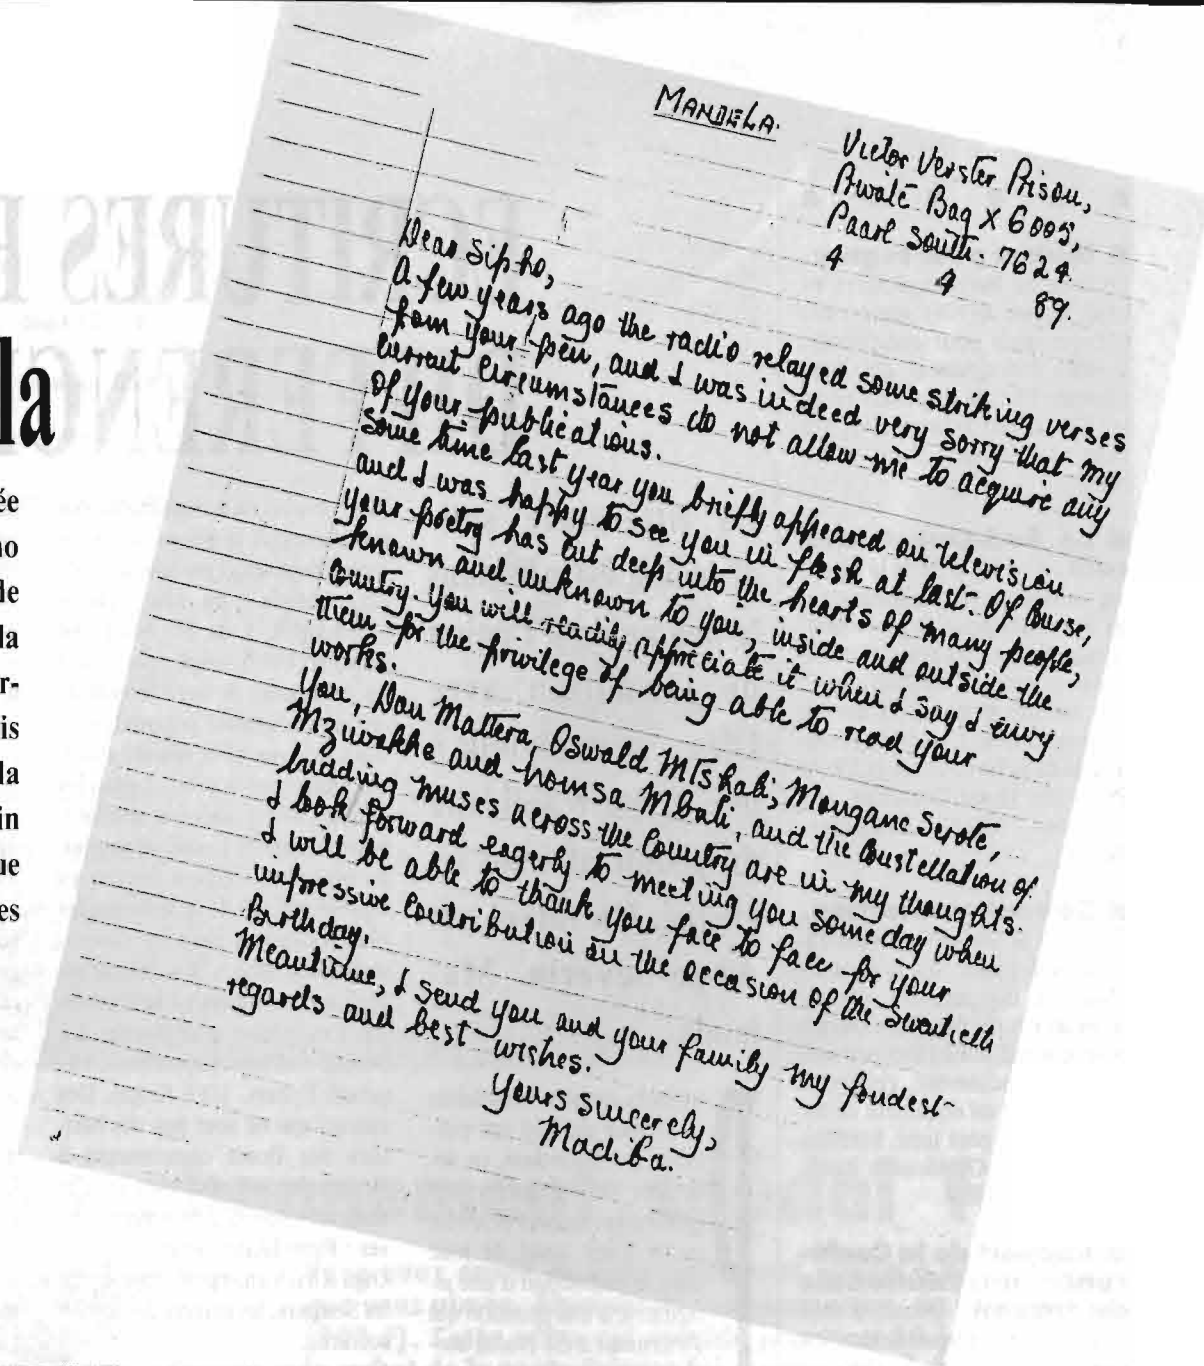 la
ée
no
le
la
r-
is
la
in
ue
es
MANDELA.
Victor Verster Prison,
Private Bag X 6005,
Paarl South. 7624.
4 4 89.
Dear Sipho,
A few years ago the radio relayed some striking verses
from your pen, and I was indeed very sorry that my
current circumstances do not allow me to acquire any
of your publications.
Some time last year you briefly appeared on television
and I was happy to see you in flesh at last. Of course,
your poetry has cut deep into the hearts of many people,
known and unknown to you, inside and outside the
country. You will readily appreciate it when I say I envy
them for the privilege of being able to read your
works.
You, Don Mattera, Oswald Mtshali, Mongane Serote,
Mzwakhe and Nomsa Mbali, and the constellation of
budding muses across the country are in my thoughts.
I look forward eagerly to meeting you some day when
I will be able to thank you face to face for your
impressive contribution on the occasion of the Swentieth
Birthday.
Meantime, I send you and your family my fondest
regards and best wishes.
Yours sincerely,
Madiba.